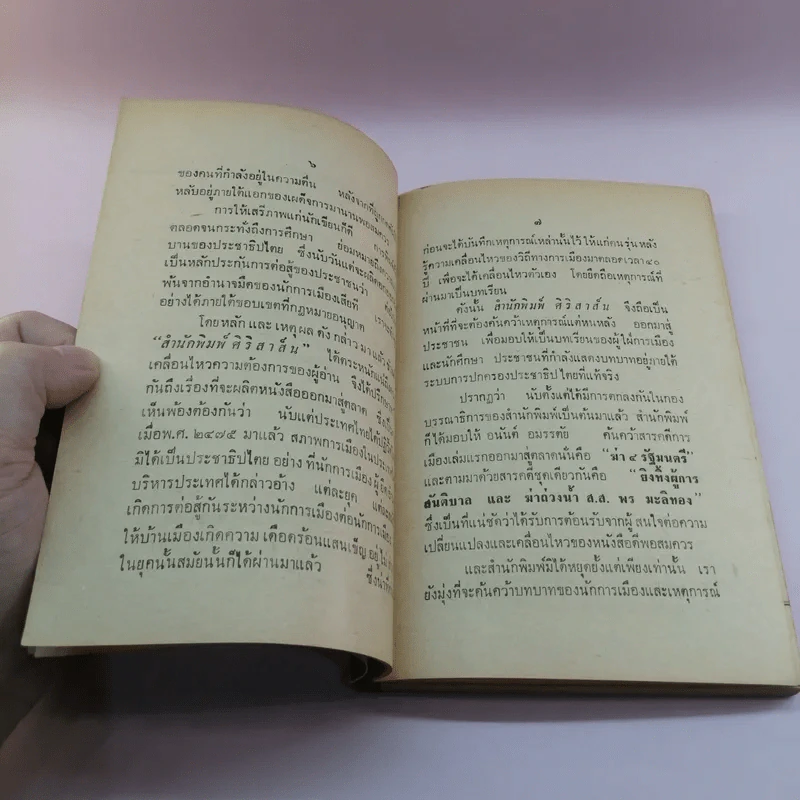 ๖
ของคนที่กำลังอยู่ในความตื่น หลังจากที่
หลับอยู่ภายใต้แอกของเผด็จการมานานพอสมควร
การให้เสรีภาพแก่นักเขียนก็ดี
ตลอดจนกระทั่งถึงการศึกษา ย่อมหมายถึงความ
บานของประชาธิปไตย ซึ่งนับวันแต่จะผลิดอก
เป็นหลักประกันการต่อสู้ของประชาชนว่า
พ้นจากอำนาจมืดของนักการเมืองเสียที
อย่างใดภายใต้ขอบเขตที่กฎหมายอนุญาต
โดยหลัก และ เหตุ ผล ดัง กล่าว มา แล้ว
“สำนักพิมพ์ ศิริสาส์น” ได้ตระหนัก
เคลื่อนไหวความต้องการของผู้อ่าน จึงได้ปรึกษา
กันถึงเรื่องที่จะผลิตหนังสือออกมาสู่ตลาด
เห็นพ้องต้องกันว่า นับแต่ประเทศไทยได้
เมื่อพ.ศ. ๒๔๗๕ มาแล้ว สภาพการเมืองใน
มิได้เป็นประชาธิปไตย อย่าง ที่นักการเมือง
บริหารประเทศได้กล่าวอ้าง แต่ละยุค
เกิดการต่อสู้กันระหว่างนักการเมืองต่อนักการเมือง
ให้บ้านเมืองเกิดความ เดือดร้อนแสนเข็ญ อยู่
ในยุคนั้นสมัยนั้นก็ได้ผ่านมาแล้ว
๗
ก่อนจะได้บันทึกเหตุการณ์เหล่านั้นไว้ ให้แก่คนรุ่นหลัง
รู้ความเคลื่อนไหวของวิถีทางการเมืองมาตลอดเวลา ๔๐
ปี เพื่อจะได้เคลื่อนไหวตัวเอง โดยยึดถือเหตุการณ์ที่
ผ่านมาเป็นบทเรียน
ดังนั้น สำนักพิมพ์ ศิริสาส์น จึงถือเป็น
หน้าที่ที่จะต้องค้นคว้าเหตุการณ์แต่หนหลัง ออกมาสู่
ประชาชน เพื่อมอบให้เป็นบทเรียนของผู้ใฝ่การเมือง
และนักศึกษา ประชาชนที่กำลังแสดงบทบาทอยู่ภายใต้
ระบบการปกครองประชาธิปไตยที่แท้จริง
ปรากฏว่า นับตั้งแต่ได้มีการตกลงกันในกอง
บรรณาธิการของสำนักพิมพ์เป็นต้นมาแล้ว สำนักพิมพ์
ก็ได้มอบให้ อนันต์ อมรรตัย ค้นคว้าสารคดีการ
เมืองเล่มแรกออกมาสู่ตลาดนั่นคือ “ฆ่า ๔ รัฐมนตรี”
และตามมาด้วยสารคดีชุดเดียวกันคือ “ยิงทิ้งผู้การ
สันติบาล และ ฆ่าถ่วงน้ำ ส.ส. พร มะลิทอง”
ซึ่งเป็นที่แน่ชัดว่าได้รับการต้อนรับจากผู้ สนใจต่อความ
เปลี่ยนแปลงและเคลื่อนไหวของหนังสือดีพอสมควร
และสำนักพิมพ์มิได้หยุดยั้งแต่เพียงเท่านั้น เรา
ยังมุ่งที่จะค้นคว้าบทบาทของนักการเมืองและเหตุการณ์